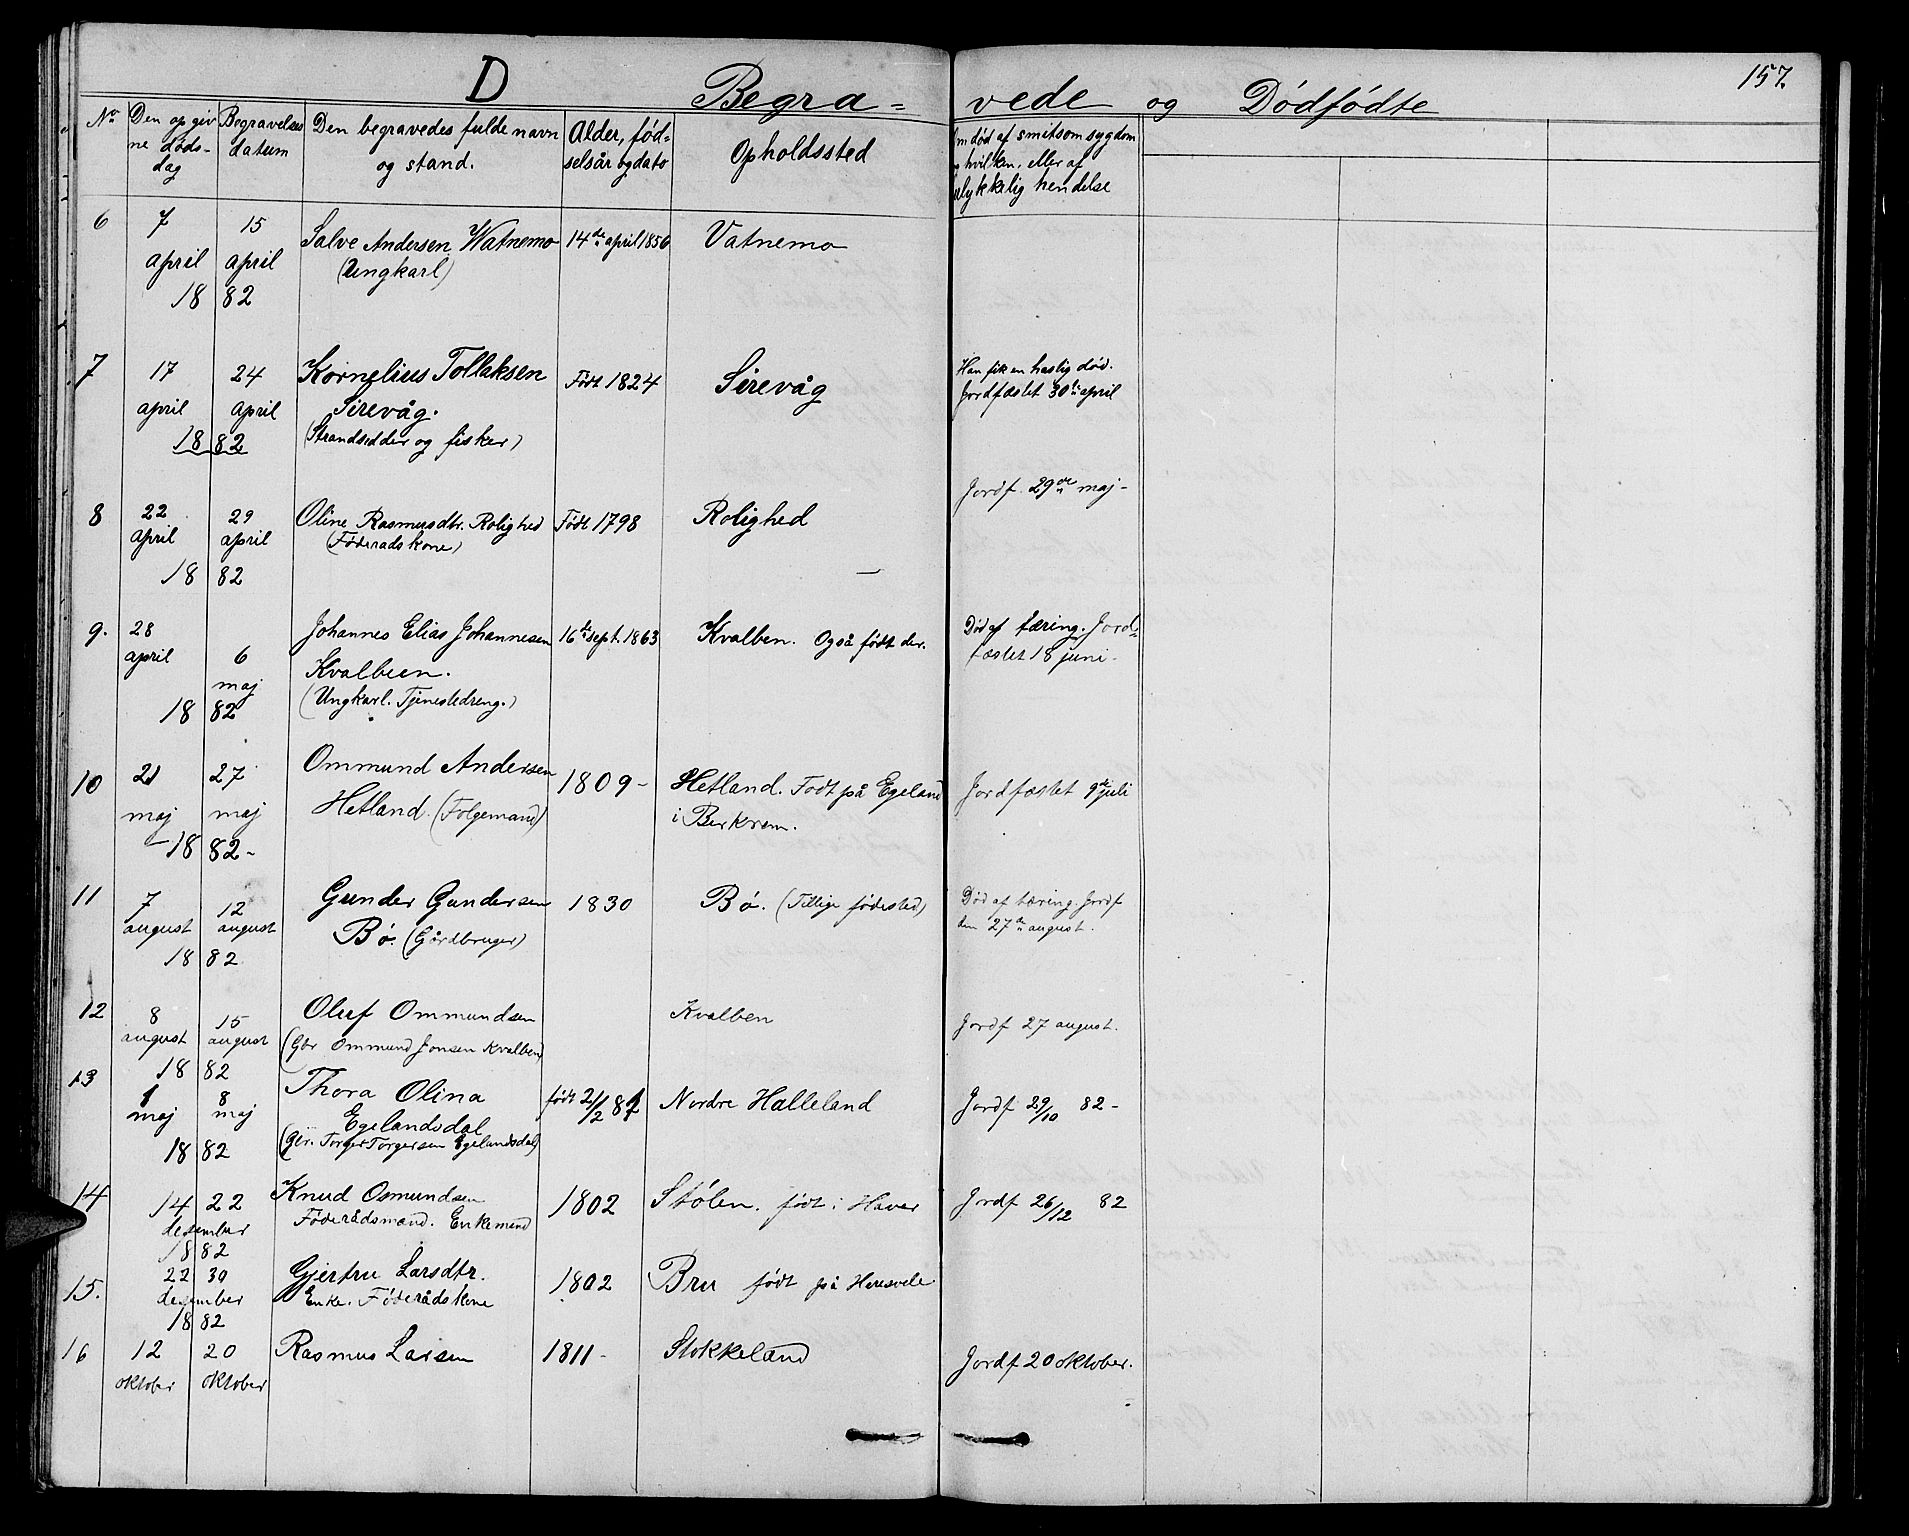 157.
D
Begra= vede og Dødfødte
No
Den opgiv
ne døds-
dag
Begravelses
datum
Den begravedes fulde navn
og stand.
Alder, fød=
selsår og dato
Opholdssted
Om død af smitsom sygdom
og hvilken, eller af
ulykkelig hendelse
6 7 april 15 april 1882
Salve Andersen Watnemo
(Ungkarl)
14de april 1856
Vatnemo
7 17 april 24 april 1882
Kornelius Tollaksen
Sirevåg.
(Strandsidder og fisker)
Født 1824
Sirevåg
Han fik en hastig død.
Jordfæstet 30te april
8 22 april 29 april 1882
Oline Rasmusdtr. Rolighed
(Føderadskone)
Født 1798
Rolighed
Jordf. 29de maj-
9. 28 april 6 maj 1882
Johannes Elias Johannesen
Kvalbeen.
(Ungkarl. Tjenestedreng.)
16de sept. 1863
Kvalben. Også født der.
Død af tæring. Jord=
fæstet 18 juni-
10 21 maj 27 maj 1882-
Ommund Andersen
Hetland. (Folgemand)
1809-
Hetland. Født på Egeland
i Berkrem.
Jordfæstet 9de juli
11 7 august 12 august 1882
Gunder Gundersen
Bø. (Gårdbruger)
1830
Bø. (Tillige fødested)
Død af tæring. Jordf
den 27de august.
12 8 august 15 august 1882
Oluf Ommundsen
(Gbr Ommund Jonsen Kvalben)
Kvalben
Jordf 27 august.
13 1 maj 8 maj 1882
Thora Olina
Egelandsdal
(Gbr. Torger Torgersen Egelandsdal)
født 2/2 81
Nordre Halleland
Jordf 29/10 82-
14 14 22 desember 1882
Knud Osmundsen
Føderådsmand. Enkemand
1802
Stølen. født i Haver
Jordf 26/12 82
15. 22 30 desember 1882
Gjertru Larsdtr.
Enke. Føderådskone
1802
Bru født på Heresvele
16 12 oktober 20 oktober
Rasmus Larsen
1811-
Stokkeland
Jordf 20 oktober.